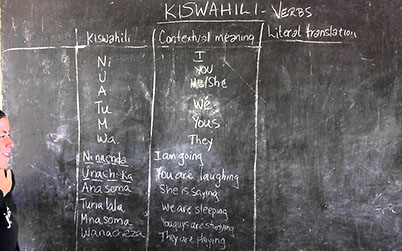 KISWAHILI - VERBS
Kiswahili Contextual meaning Literal translation
Ni I
U YOU
A He/She
Tu We
M Yous
Wa. They
Ninaenda I am going
Unacheka You are laughing
Anasema She is saying
Tunalala We are sleeping
Mnasoma You guys are studying
Wanacheza They are playing